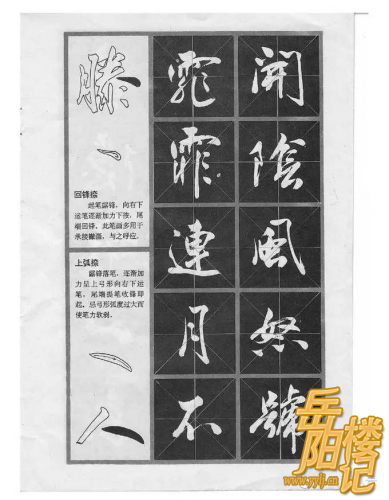 滕
回锋捺
起笔露锋,向右下
运笔逐渐加力下按,尾
端回锋,此笔画多用于
承接撇画,与之呼应。
上弧捺
露锋落笔,逐渐加
力呈上弓形向右下运
笔,尾端提笔收锋即
起,忌弓形弧度过大而
使笔力软弱。
人
霏霏連月不
開陰風怒號
岳阳楼记
www.yylj.cn